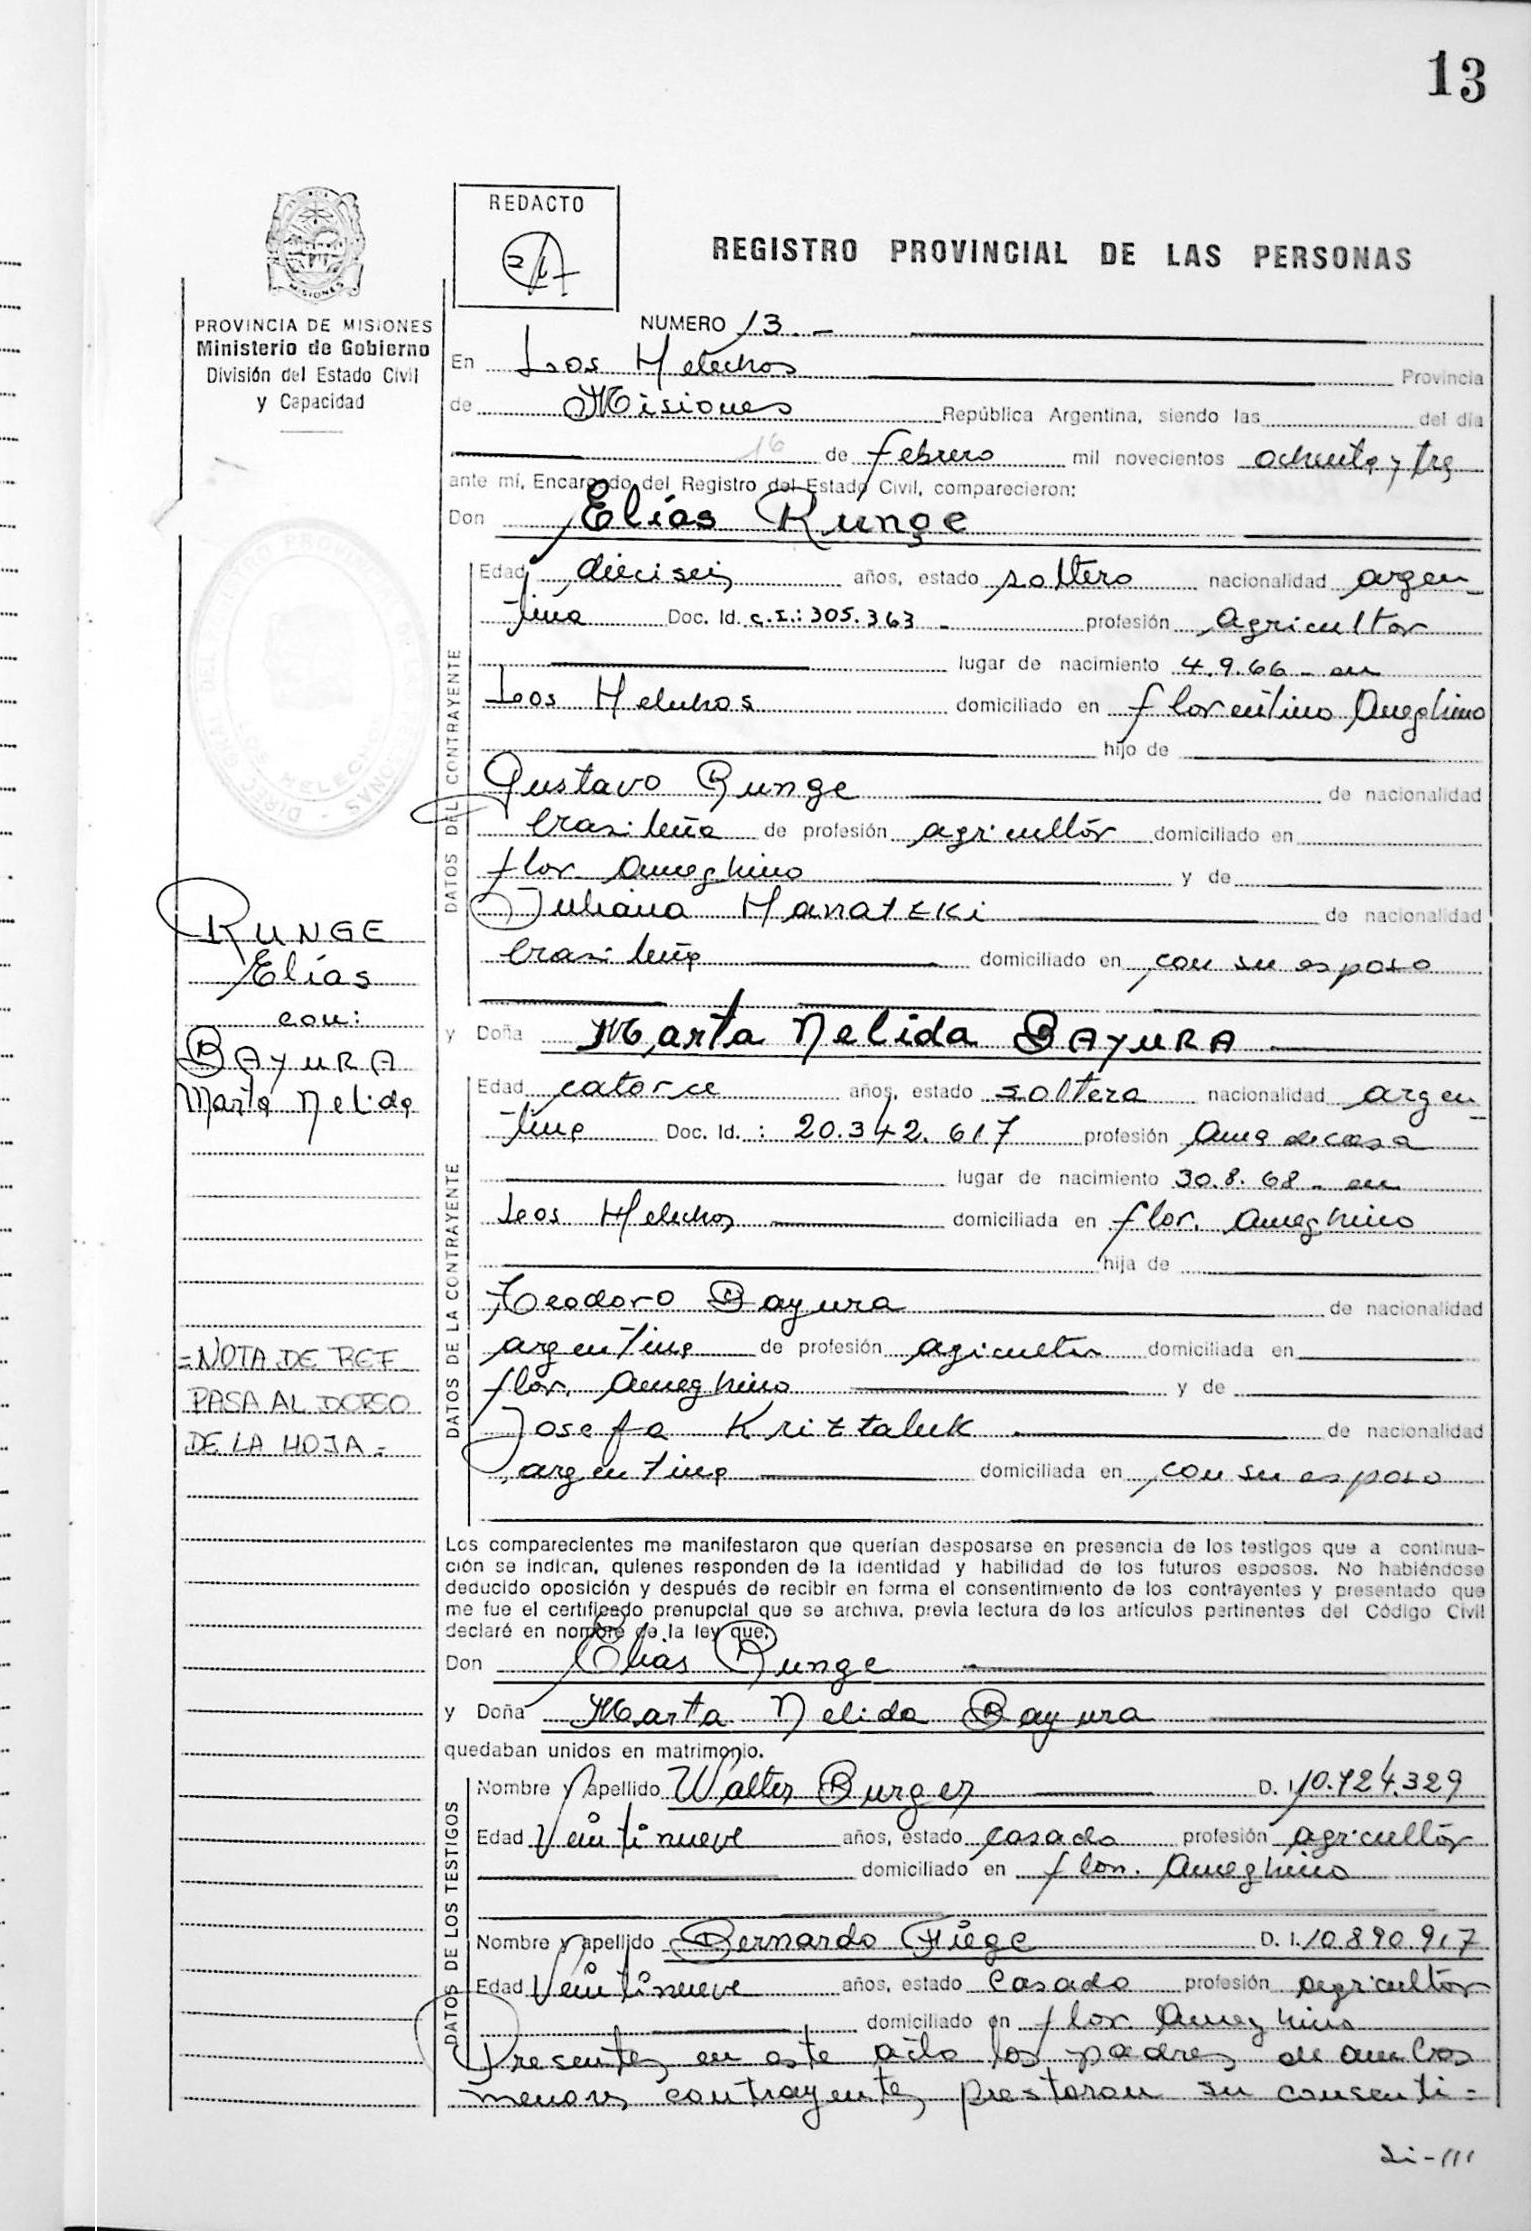 13
REDACTO
REGISTRO PROVINCIAL DE LAS PERSONAS
PROVINCIA DE MISIONES
Ministerio de Gobierno
División del Estado Civil
y Capacidad
NUMERO 13.-
En Los Helechos Provincia
de Misiones República Argentina, siendo las del día
16 de febrero mil novecientos ochenta y tres
ante mí, Encargado del Registro del Estado Civil, comparecieron:
Don Elías Runge
DATOS DEL CONTRAYENTE
Edad dieciseis años, estado soltero nacionalidad argen-
tina Doc. Id. c.I.: 305.363 - profesión agricultor
lugar de nacimiento 4.9.66 - en
Los Helechos domiciliado en florentino Ameghino
hijo de
Gustavo Runge de nacionalidad
brasileña de profesión agricultor domiciliado en
flor. Ameghino y de
Juliana Hanatzki de nacionalidad
brasileña domiciliado en con su esposo
RUNGE
Elías
con:
BAYURA
Marta Nelida
y Doña Marta Nelida BAYURA
DATOS DE LA CONTRAYENTE
Edad catorce años, estado soltera nacionalidad argen-
tina Doc. Id. : 20.342.617 profesión Ama de casa
lugar de nacimiento 30.8.68 - en
Los Helechos domiciliada en flor. Ameghino
hija de
Teodoro Bayura de nacionalidad
argentina de profesión agricultor domiciliada en
flor. Ameghino y de
Josefa Kriztaluk de nacionalidad
argentina domiciliada en con su esposo
=NOTA DE REF
PASA AL DORSO
DE LA HOJA=
Los comparecientes me manifestaron que querían desposarse en presencia de los testigos que a continua-
ción se indican, quienes responden de la identidad y habilidad de los futuros esposos. No habiéndose
deducido oposición y después de recibir en forma el consentimiento de los contrayentes y presentado que
me fue el certificado prenupcial que se archiva, previa lectura de los artículos pertinentes del Código Civil
declaré en nombre de la ley que,
Don Elias Runge
y Doña Marta Nelida Bayura
quedaban unidos en matrimonio.
DATOS DE LOS TESTIGOS
Nombre y apellido Walter Burger D. I. 10.724.329
Edad Veintinueve años, estado casado profesión agricultor
domiciliado en flor. Ameghino
Nombre y apellido Bernardo Fiege D. I. 10.890.917
Edad Veintinueve años, estado casado profesión agricultor
domiciliado en flor. Ameghino
Presentes en este acto los padres de ambos
menores contrayentes prestaron su consenti=